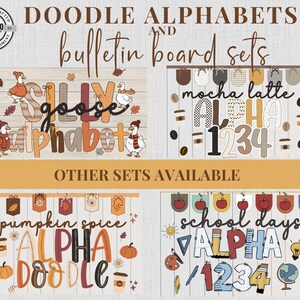 DOODLE ALPHABETS
AND
bulletin board sets
SILLY
goose
alphabet
mocha latte
ALPHA
1234
OTHER SETS AVAILABLE
pumpkin spice
ALPHA
DOODLE
school days
ALPHA
1234